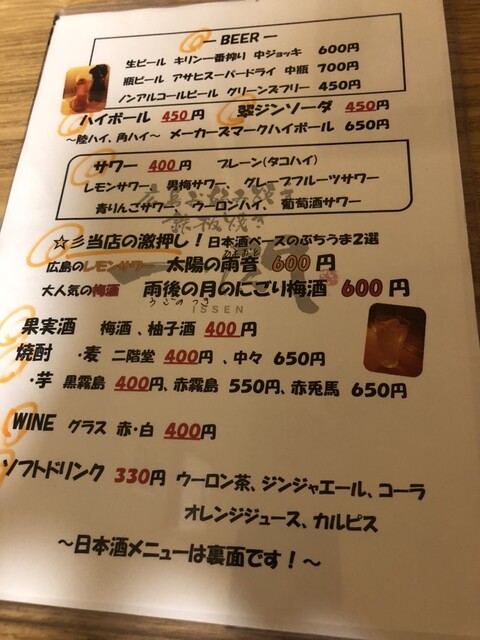 BEER
生ビール キリン一番搾り 中ジョッキ 600円
瓶ビール アサヒスーパードライ 中瓶 700円
ノンアルコールビール グリーンズフリー 450円
ハイボール 450円 翠ジンソーダ 450円
～陸ハイ、角ハイ～ メーカーズマークハイボール 650円
サワー 400円 プレーン(タコハイ)
レモンサワー、男梅サワー グレープフルーツサワー
青りんごサワー ウーロンハイ、葡萄酒サワー
広島お好み焼き
鉄板焼き
☆彡当店の激押し！日本酒ベースのぷちうま2選
広島のレモンサワー 太陽の雨音 600円
大人気の梅酒 雨後の月のにごり梅酒 600円
うごのつき
ISSEN
果実酒 梅酒、柚子酒 400円
焼酎 ・麦 二階堂 400円、中々 650円
・芋 黒霧島 400円、赤霧島 550円、赤兎馬 650円
WINE グラス 赤・白 400円
ソフトドリンク 330円 ウーロン茶、ジンジャエール、コーラ
オレンジジュース、カルピス
～日本酒メニューは裏面です！～